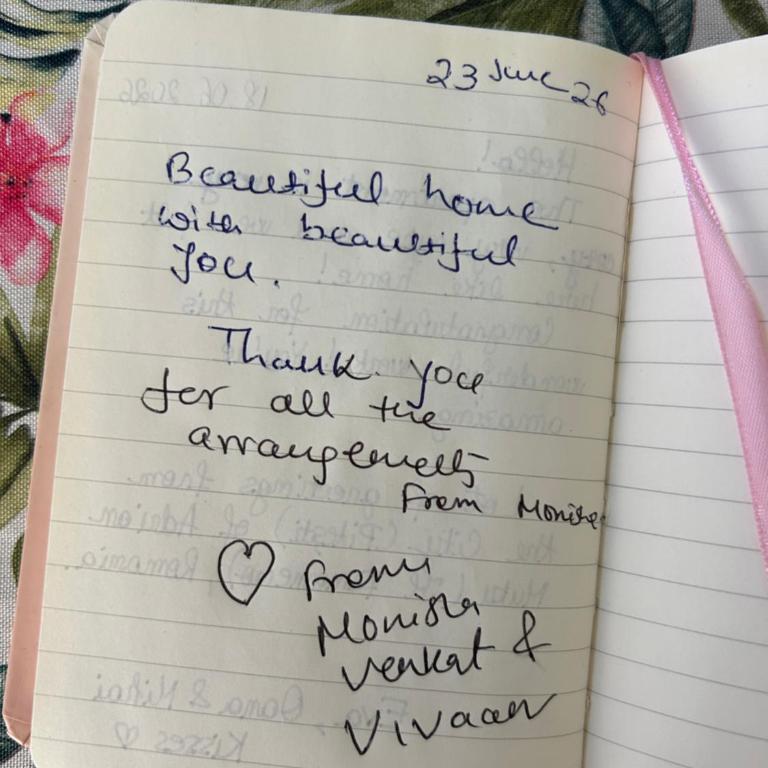 23 June 26
Beautiful home
with beautiful
you.
Thank you
for all the
arrangements
from Monisha
from
Monisha
Venkat &
Vivaan